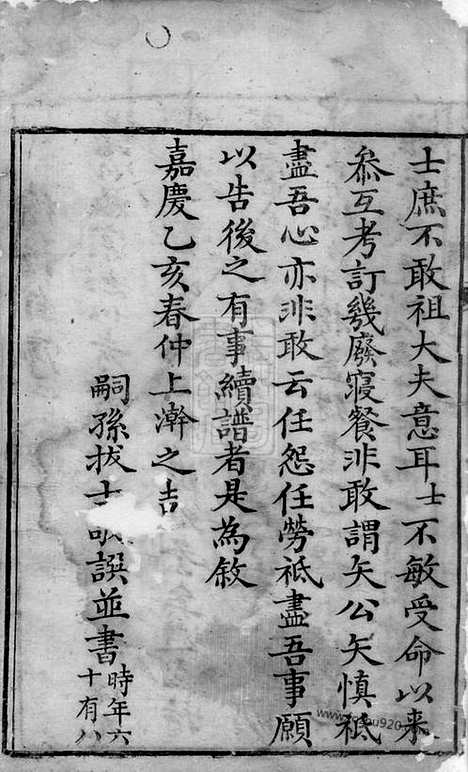 士庶不敢祖大夫意耳士不敏受命以来
叅互考訂幾廢寢餐非敢謂矢公矢慎祗
盡吾心亦非敢云任怨任勞祗盡吾事願
以告後之有事續譜者是為敘
嘉慶乙亥春仲上澣之吉
嗣孫拔士 譔並書時年六十有八